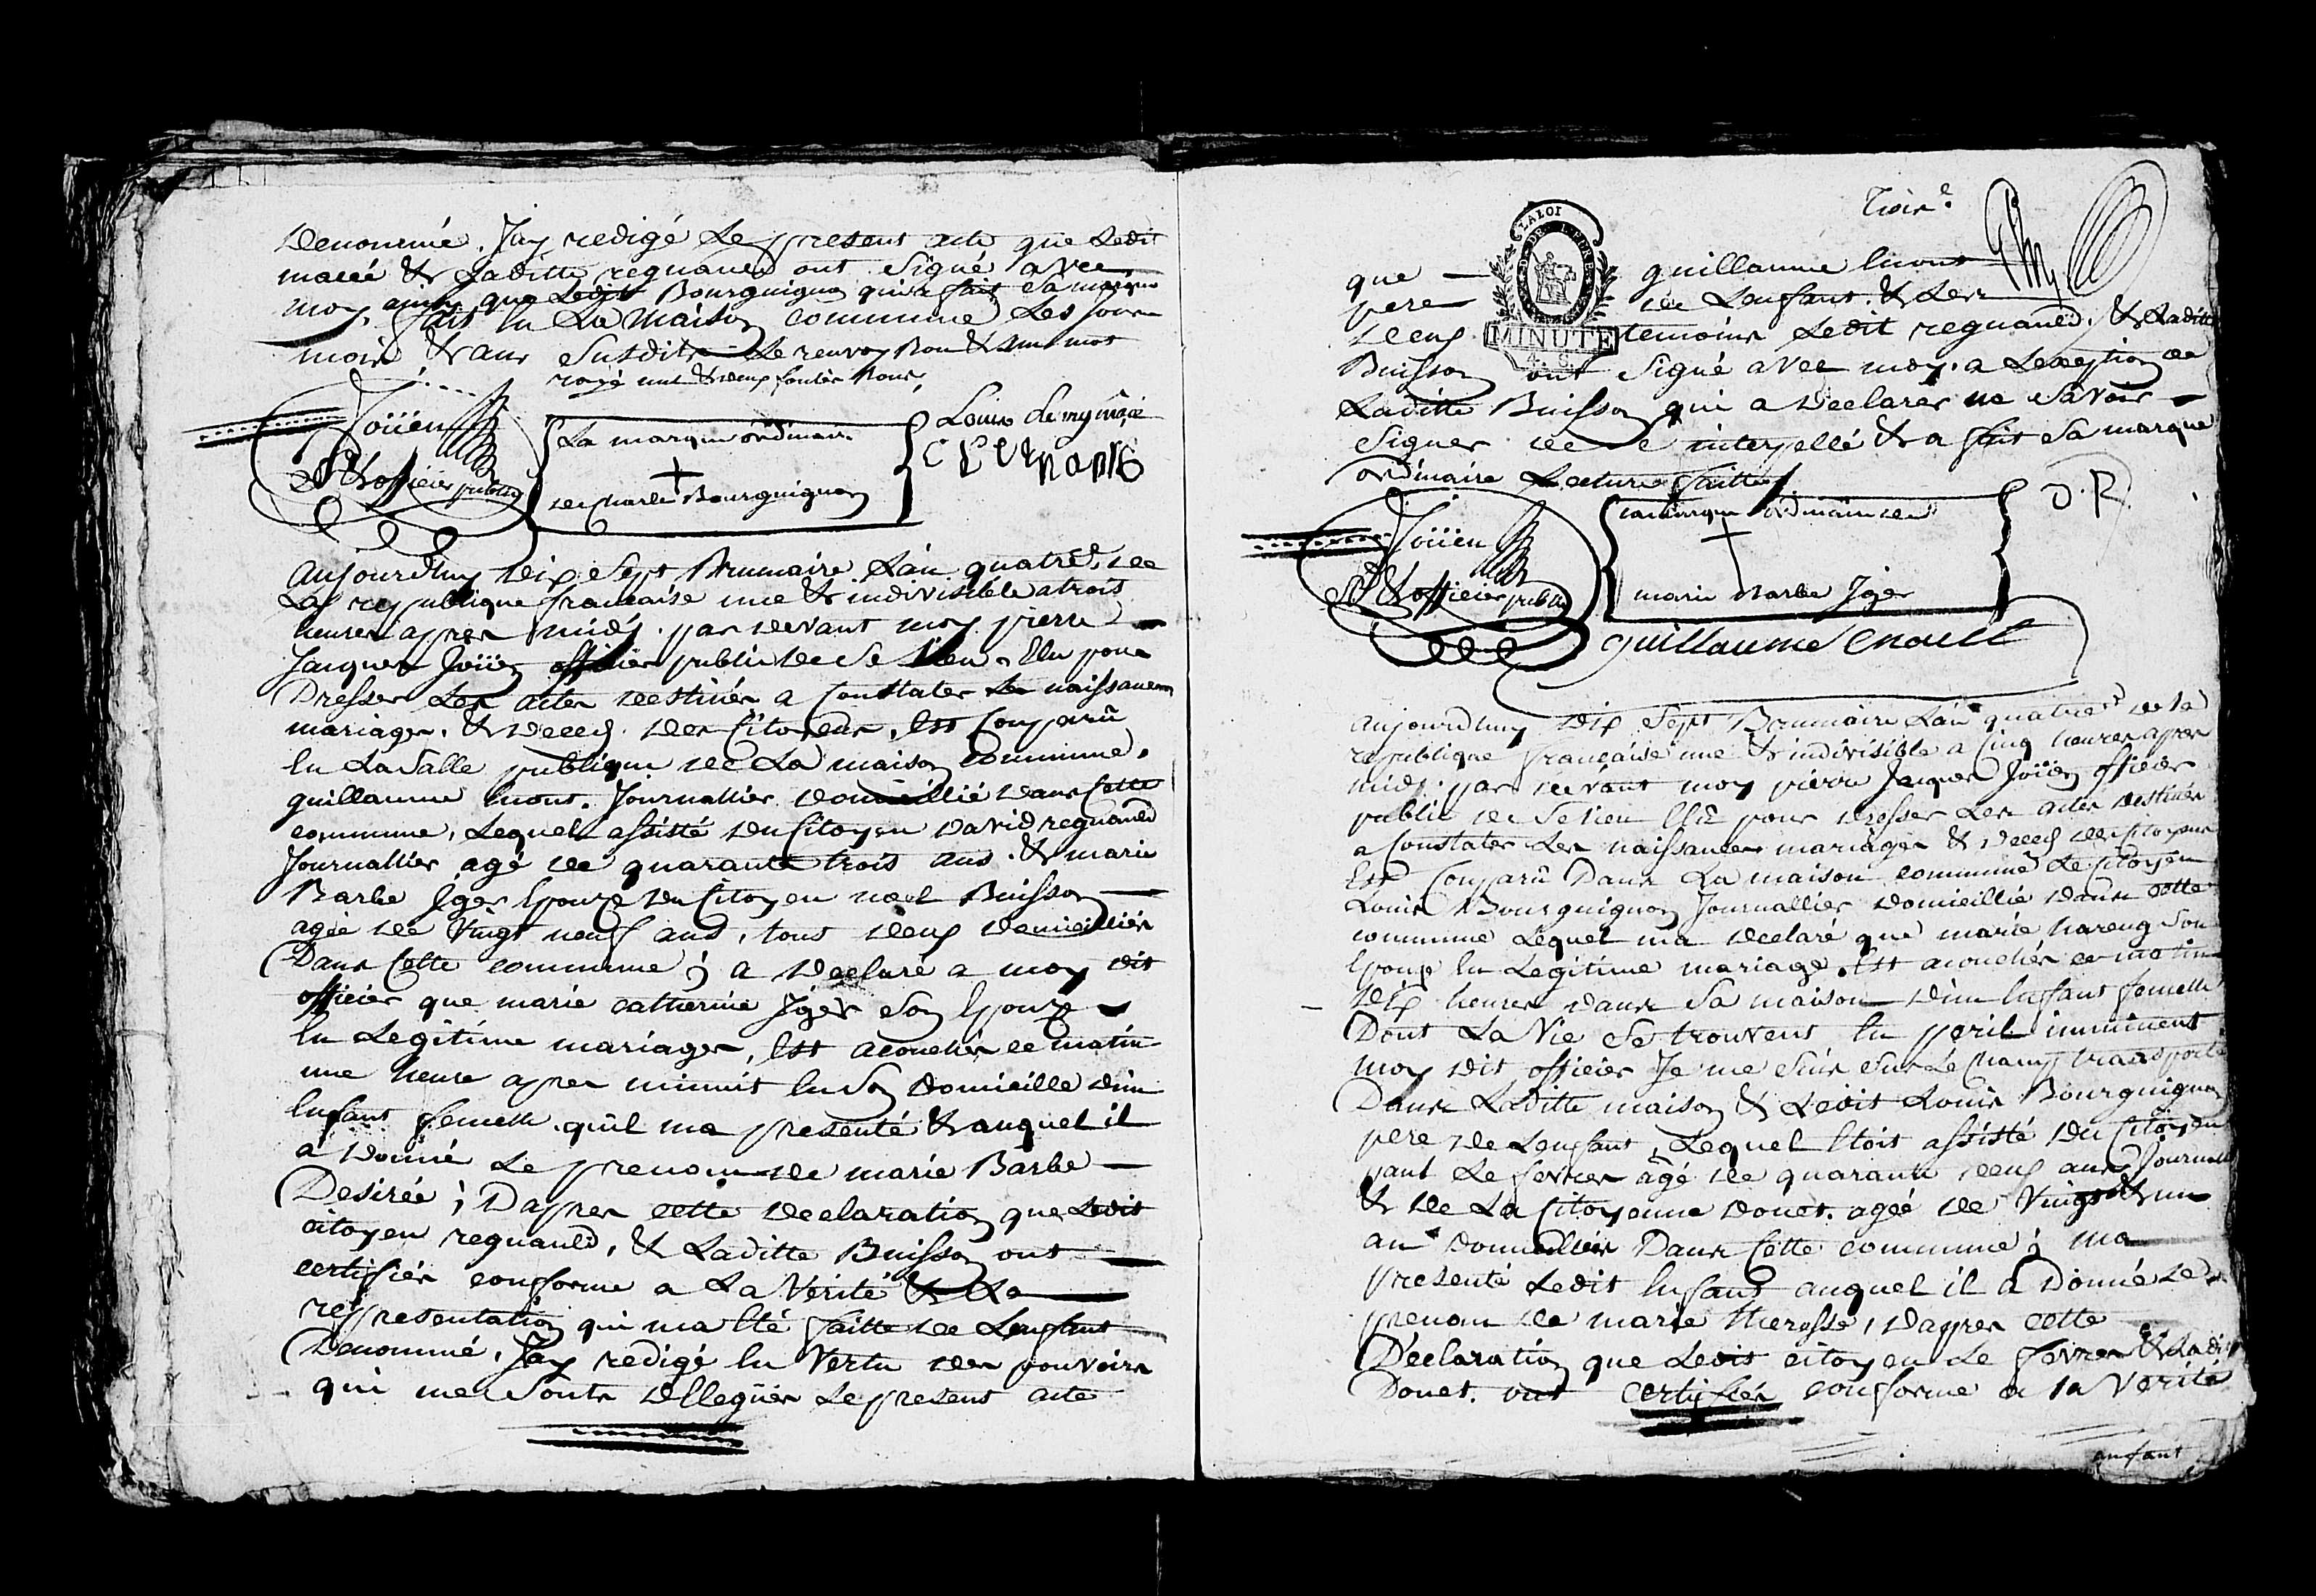 Denommé. Jay redigé Le present acte que Ledit
macé & Laditte regnauld ont Signé avec
moy, ainsy que Ledit Bourguignon qui a fait sa marque
fait En La Maison commune Les Jour
mois & an Susdits Le renvoy Bon & un mot
rayé nul & deux Bons
Joüen
off officier public
La marque ordinaire
de charle Bourguignon
Louis
Aujourdhuy Dix Sept Brumaire Lan quatre de
La republique francaise une & indivisible a trois
heures apres midy. par devant moy pierre
Jacques Joüen officier public de Se Lieu, Elu pour
Dresser Les actes destinés a Constater Les naissances
mariages, & Deces des Citoyens, Est Comparû
En La Salle publique de La maison commune,
guillaume Enout. Journallier Domicillié Dans Cette
commune, Lequel assisté du Citoyen David regnauld
Journallier agé de quarante trois ans. & marie
Barbe Jger Epouze du Citoyen noel Buisson
agée de Vingt neuf ans, tous deux Domicilliés
Dans Cette commune ; a Declaré a moy dit
officier que marie catherine Jger Son Epouze
En Legitime mariage, Est acouchée ce matin
une heure apres minuit En Son Domicille dun
Enfant femelle. quil ma presenté & auquel il
a Donné Le prenom de marie Barbe
Desirée ; Dapres cette Declaration que Ledit
citoyen regnauld, & Laditte Buisson ont
certifiés conforme a La Verité & La
représentation qui ma Eté faitte de Lenfant
Denommé. Jay redigé En Vertu des pouvoirs
qui me Sonts delleguer Le present acte
que guillaume Enout
pere de Lenfant. & Les
deux temoins Ledit regnauld. & Laditte
Buisson ont Signé avec moy. a Lexeption de
Laditte Buisson qui a Declarer ne Savoir
Signer de Ce interpellé & a fait Sa marque
ordinaire Lecture faitte
LA LOI
MINUTE
D. R.
Joüen
officier public
La marque ordinaire de
marie Barbe Jger
guillaume Enoult
Aujourdhuy Dix Sept Brumaire Lan quatre de la
republique francaise une & indivisible a Cinq heures apres
midy. par devant moy pierre Jacques Joüen officier
public de Se Lieu Elû pour dresser Les actes destinés
a Constater Les naissances mariages & Deces des Citoyens
Est Comparû Dans La maison commune Le Citoyen
Louis Bourguignon Journallier Domicillié Dans Cette
commune Lequel ma Declaré que marie hareng Son
Epouze En Legitime mariage. Est acouchée ce matin
Dix heures dans Sa maison dun Enfant femelle
Dont La Vie Se trouvent En peril imminent
moy dit officier Je me Suis Sur Le Champ transporté
Dans Laditte maison & Ledit Louis Bourguignon
pere de Lenfant, Lequel Etois assisté du Citoyen
paul Le fevrer âgé de quarante deux ans Journallier
& de La Citoyenne Douet. agée de Vingt & un
an Domicilliés Dans Cette commune ; ma
presenté Ledit Enfant auquel il a Donné Le
prenom de marie theresse, Dapres cette
Déclaration que Ledit citoyen Le fevrer & Ladite
Douet. ont certifiés conforme a la Verité
enfant